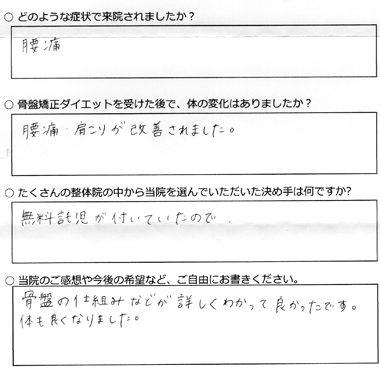 ○ どのような症状で来院されましたか？
腰痛
○ 骨盤矯正ダイエットを受けた後で、体の変化はありましたか？
腰痛・肩こりが改善されました。
○ たくさんの整体院の中から当院を選んでいただいた決め手は何ですか?
無料託児が付いていたので.
○ 当院のご感想や今後の希望など、ご自由にお書きください。
骨盤の仕組みなどが詳しくわかって良かったです。
体も良くなりました。